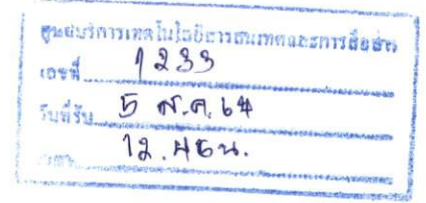 ศูนย์บริการเทคโนโลยีสารสนเทศและการสื่อสาร
เลขที่ 1233
วันที่รับ 5 ส.ค. 64
12.46น.